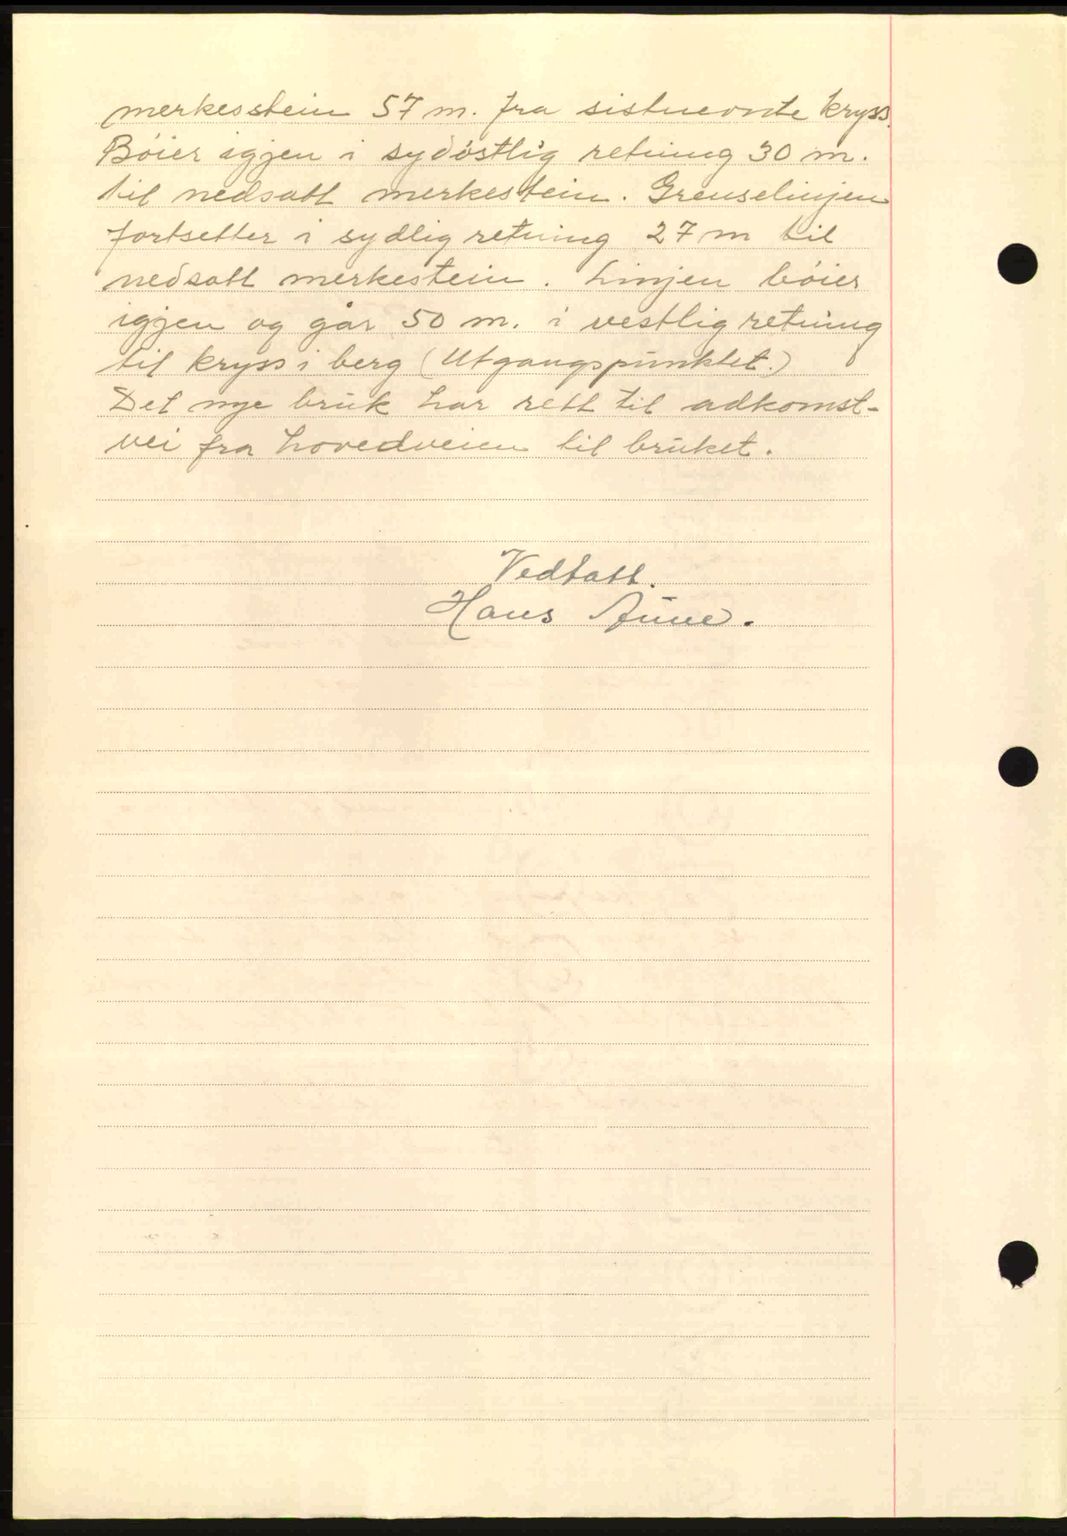 merkesstein 57 m. fra sistnevnte kryss.
Bøier igjen i sydøstlig retning 30 m.
til nedsatt merkestein. Grenselinjen
fortsetter i sydlig retning 27 m til
nedsatt merkestein. Linjen bøier
igjen og går 50 m. i vestlig retning
til kryss i berg (Utgangspunktet.)
Det nye bruk har rett til adkomst-
vei fra hovedveien til bruket.
Vedtatt.
Hans Aune.